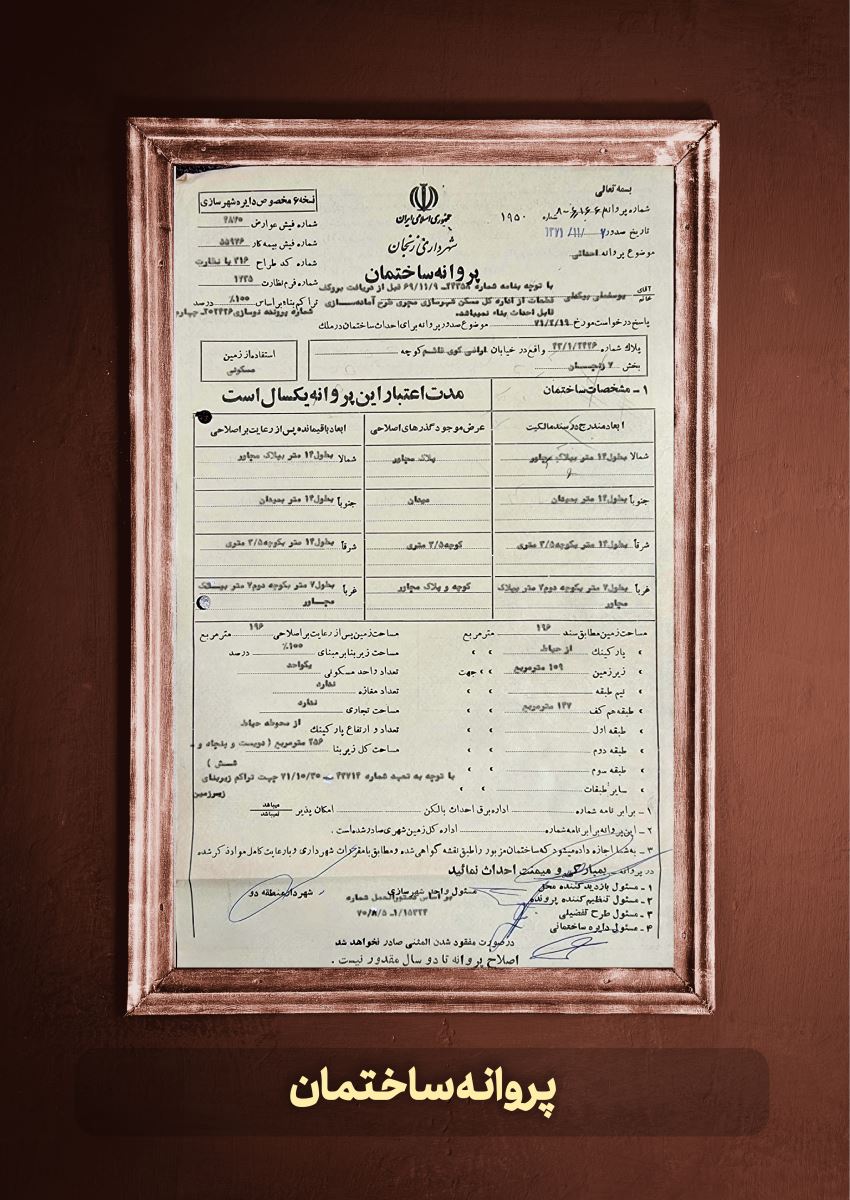 بسمه تعالی
جمهوری اسلامی ایران
شهرداری زنجان
پروانه ساختمان
نسخه ۶ مخصوص دایره شهرسازی
شماره پروانه
شماره ۱۹۵۰
تاریخ صدور
موضوع پروانه احداثی
شماره فیش عوارض
شماره فیش بیمه کار ۵۵۹۲۶
شماره کد طراح ۳۱۶ با نظارت
شماره فرم نظارت ۱۲۳۵
تراکم بنا بر اساس ۱۰۰٪ درصد
آقای
خانم
با توجه بنامه شماره ۶۹/۱۱/۹ قبل از دریافت بروکف
قطعات از اداره کل مسکن شهرسازی مجری طرح آماده سازی
قابل احداث بناء نمیباشد.
پاسخ درخواست مورخ ۷۱/۲/۱۹ موضوع صدور پروانه برای احداث ساختمان در ملک
پلاک شماره ۴۳/۱/۲۴۲۶ واقع در خیابان اراضی کوی قائم کوچه
بخش ۷ زنجان
استفاده از زمین
مسکونی
۱ ـ مشخصات ساختمان
مدت اعتبار این پروانه یکسال است
ابعاد مندرج در سند مالکیت
عرض موجود گذرهای اصلاحی
ابعاد باقیمانده پس از رعایت بر اصلاحی
شمالا بطول ۱۴ متر بپلاک مجاور
پلاک مجاور
شمالا بطول ۱۴ متر بپلاک مجاور
جنوباً بطول ۱۴ متر بمیدان
میدان
جنوباً بطول ۱۴ متر بمیدان
شرقاً بطول ۱۴ متر بکوچه ۳/۵ متری
کوچه ۳/۵ متری
شرقاً بطول ۱۴ متر بکوچه ۳/۵ متری
غرباً بطول ۷ متر بکوچه دوم ۷ متر بپلاک
مجاور
کوچه و پلاک مجاور
غرباً بطول ۷ متر بکوچه دوم ۷ متر بپلاک
مجاور
مساحت زمین مطابق سند ۱۹۶ متر مربع
مساحت زمین پس از رعایت بر اصلاحی ۱۹۶ متر مربع
» پارکینگ از حیاط » »
مساحت زیر بنا بر مبنای ۱۰۰٪ درصد
» زیرزمین ۱۰۹ متر مربع » » جهت
تعداد واحد مسکونی یکواحد
» نیم طبقه » »
تعداد مغازه ندارد
» طبقه هم کف ۱۴۷ متر مربع » »
مساحت تجاری ندارد
» طبقه اول » »
تعداد و ارتفاع پارکینگ از محوطه حیاط
» طبقه دوم » »
مساحت کل زیر بنا ۲۵۶ متر مربع ( دویست و پنجاه و
شش )
» طبقه سوم » »
با توجه به تعهد شماره ۴۲۷۱۴ ـ ۷۱/۱۰/۳۰ جهت تراکم زیربنای
» سایر طبقات » »
زیرزمین
۱ ـ برابر نامه شماره اداره برق احداث بالکن امکان پذیر میباشد
نمیباشد
۲ ـ این پروانه برابر نامه شماره اداره کل زمین شهری صادر شده است .
۳ ـ به شما اجازه داده میشود که ساختمان مزبور را طبق نقشه گواهی شده و مطابق با مقررات شهرداری و با رعایت کامل مواد ذکر شده
در پروانه بمبارکی و میمنت احداث نمائید
۱ ـ مسئول بازدید کننده محل
۲ ـ مسئول تنظیم کننده پرونده
۳ ـ مسئول طرح تفضیلی
۴ ـ مسئول دایره ساختمانی
مسئول واحد شهرسازی
بر اساس دستورالعمل شماره
شهردار منطقه دو
در صورت مفقود شدن المثنی صادر نخواهد شد
اصلاح پروانه تا دو سال مقدور نیست .
پروانه ساختمان